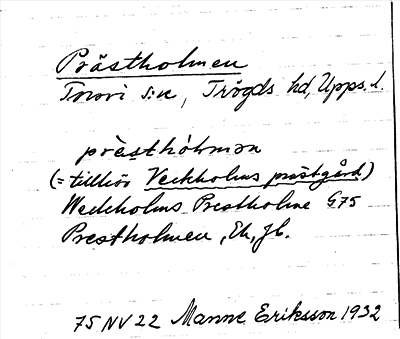 Prästholmen
Torsvi s:n, Trögds hd, Upps. l.
prèsthòlmən
(= tillhör Veckholms prästgård)
Weckholms Prestholme G75
Prestholmen, Ek, Jb.
75 NV 22 Manne Eriksson 1932